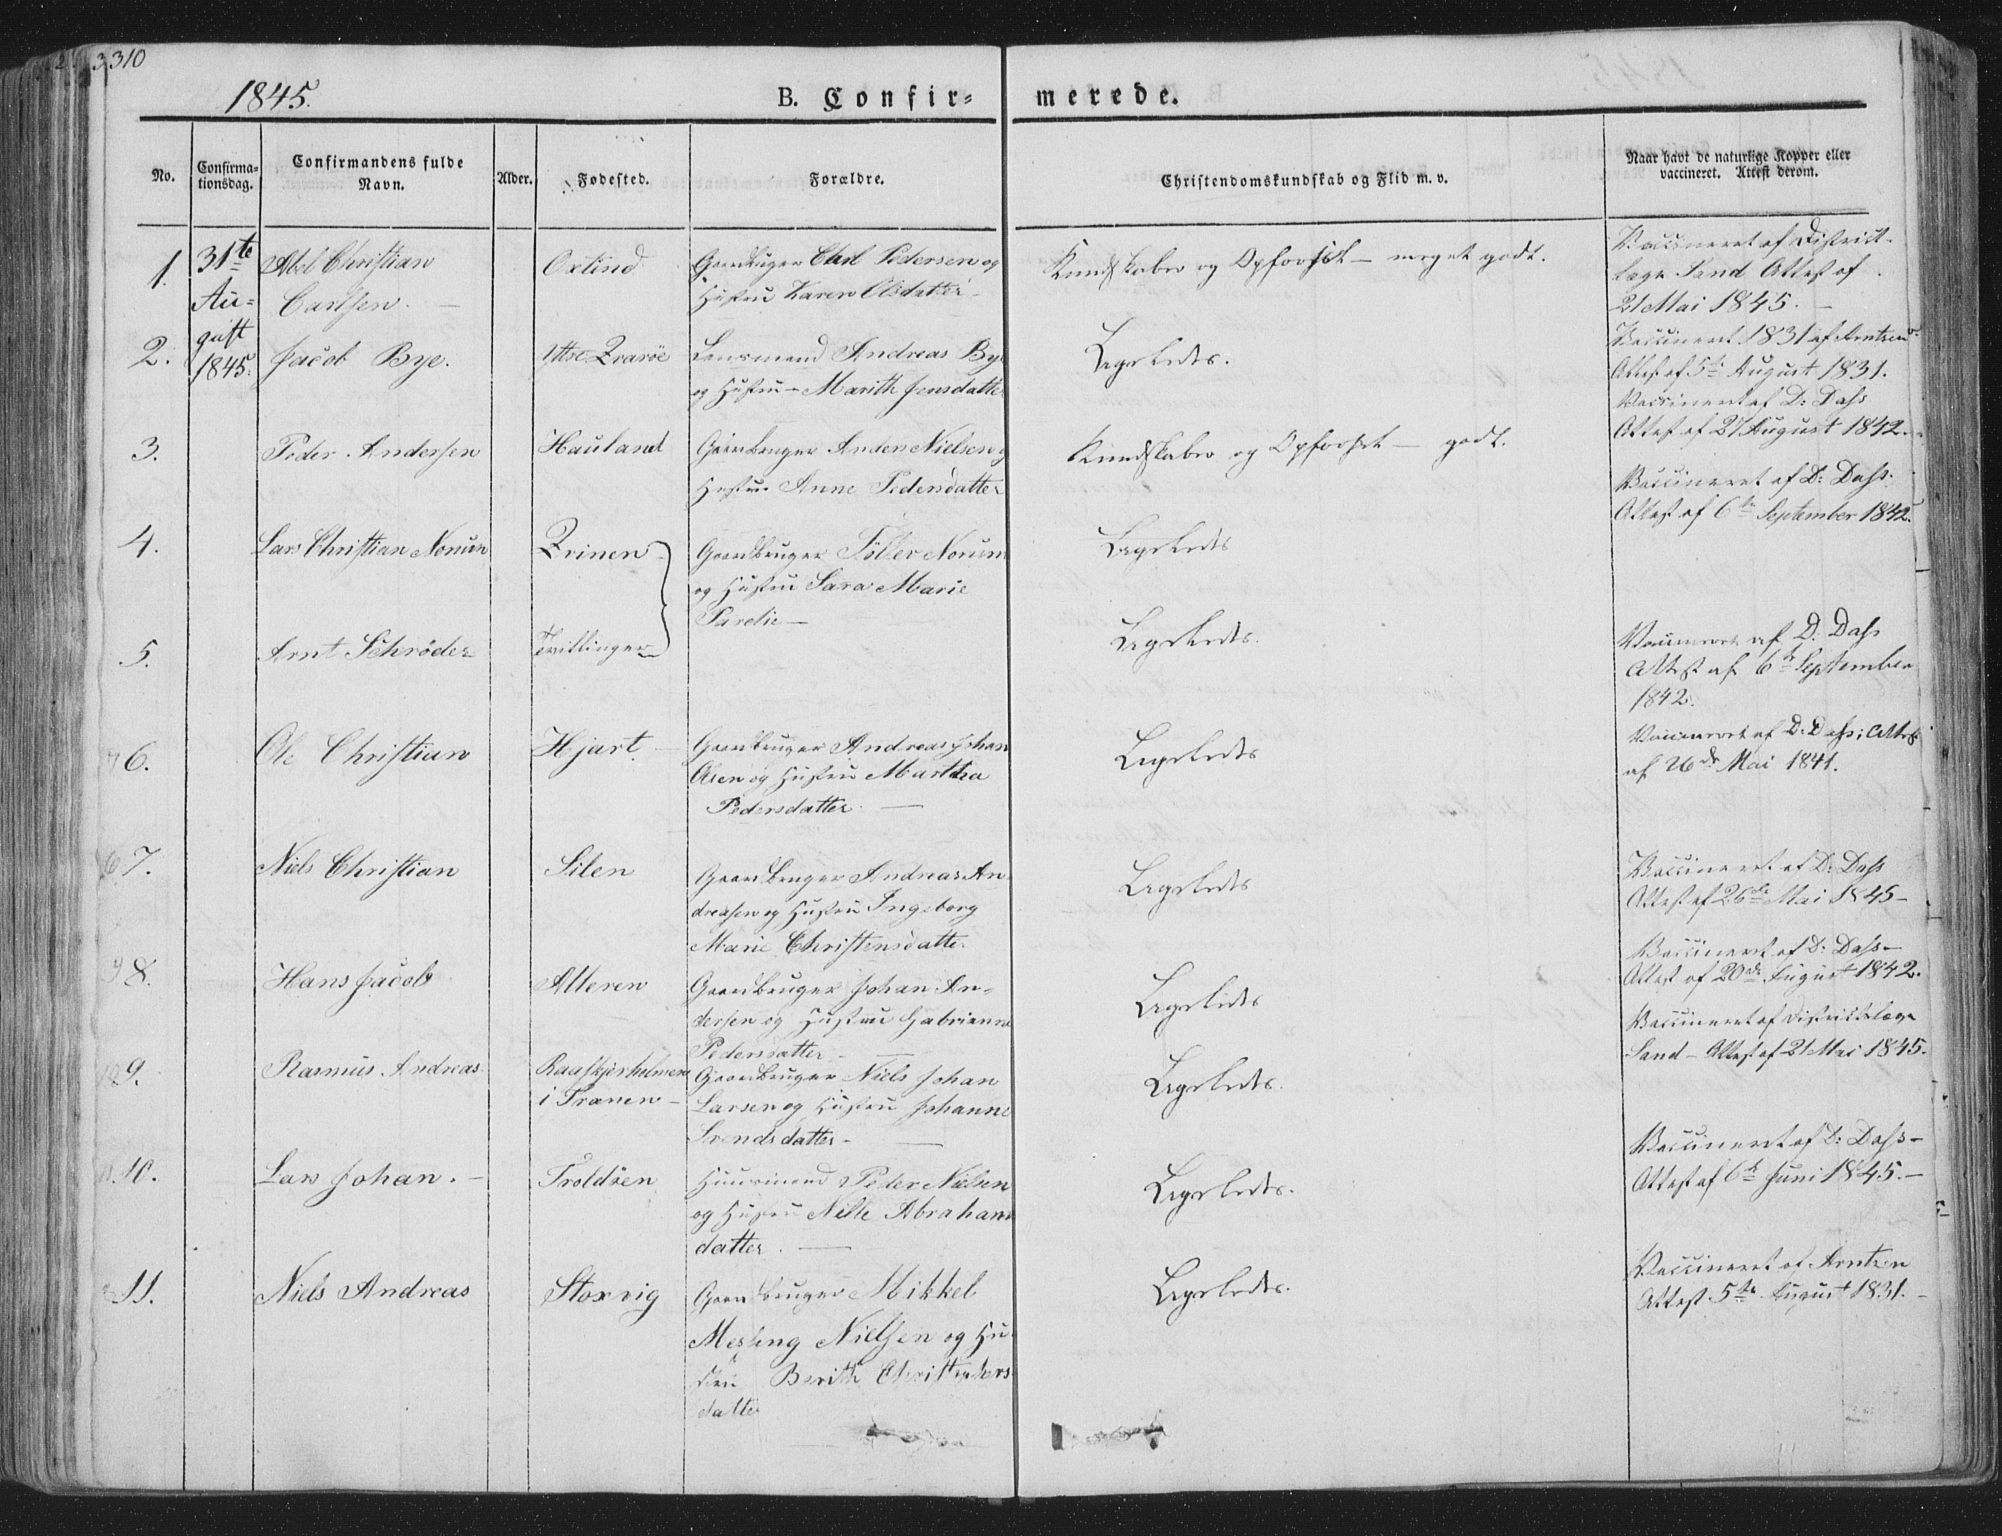 310
1845.
B. Confir- merede.
No.
Confirma-
tionsdag.
Confirmandens fulde
Navn.
Alder.
Fødested.
Forældre.
Christendomskundskab og Flid m. v.
Naar havt de naturlige Kopper eller
vaccineret. Attest derom.
1.
31te
Au-
gust
1845.
Abel Christian
Carlsen.
Oxtind
Gaardbruger Carl Pedersen og
Hustru Karen Olsdatter
Kundskaber og Opførsel - meget godt.
Vaccineret af District-
læge Sand Attest af
21 Mai 1845.
2.
Jacob Bye.
Lensmand Andreas Bye
og Hustru Marith Jensdatter
Ligeledes.
Vaccineret 1831 af Arntzen
Attest af 5te August 1831.
3.
Peder Andersen
Hauland
Gaardbruger Anders Nielsen og
Hustru Anne Pedersdatter
Kundskaber og Opførsel - godt.
Vaccineret af D: Dass
Attest af 27 August 1842.
4.
Lars Christian Norum
Zvinen
Gaardbruger Norum
og Hustru Sara Marie
Parelie
Ligeledes
Vaccineret af D: Dass.
Attest af 6te September 1842.
5.
Arnt Schrøder
Tvillinger
Ligeledes.
Vaccineret af D. Dass
Attest af 6te September
1842.
6.
Ole Christian
Hjart
Gaardbruger Andreas Johan
Olsen og Hustru Martha
Pedersdatter.
Ligeledes
Vaccineret af D. Dass; Attest
af 26de Mai 1841.
7.
Niels Christian
Silen
Gaardbruger Andreas An-
dreasen og Hustru Ingeborg
Marie Christensdatter
Ligeledes
Vaccineret af D: Dass
Attest af 26de Mai 1845-
8.
Hans Jacob
Alteren
Gaardbruger Johan An-
dersen og Hustru Gabrianna
Pedersdatter
Ligeledes
Vaccineret af D: Dass-
Attest af 20de August 1842.
9.
Rasmus Andreas
i Trænen
Gaardbruger Niels Johan
Larsen og Hustru Johanne
Svendsdatter-
Ligeledes.
Vaccineret af Districtslæge
Sand - Attest af 21 Mai 1845.
10.
Lars Johan.
Troldsen
Huusmand Peder Nielsen
og Hustru Nille Abraham
datter.
Ligeledes.
Vaccineret af D: Dass-
Attest af 6te Juni 1845.-
11.
Niels Andreas
Storvig
Gaardbruger Mikkel
Messing Nielsen og Hu-
stru Berith
datter
Ligeledes.
Vaccineret af Arntzen
Attest 5te August 1831.